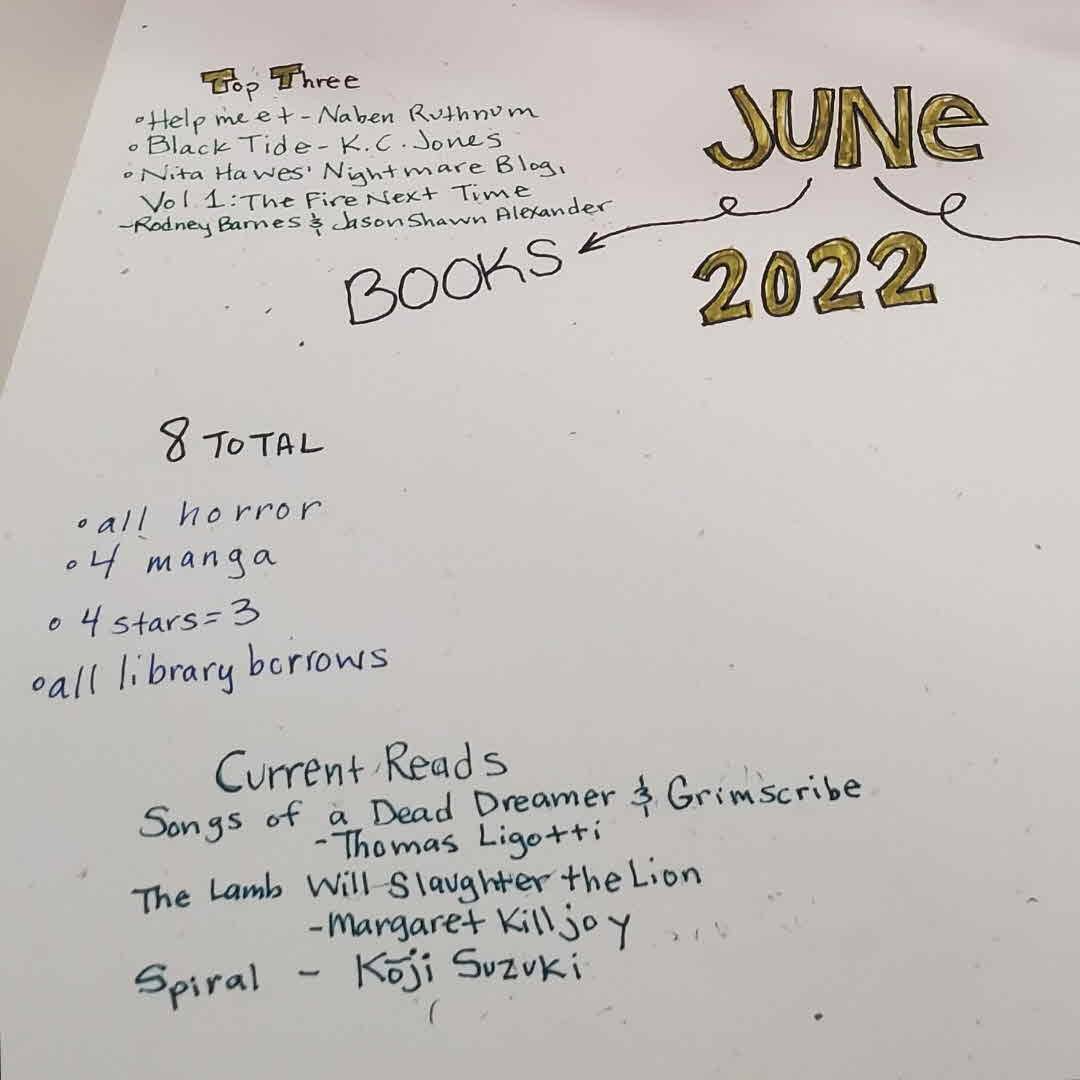 Top Three
• Helpmeet - Naben Ruthnum
• Black Tide - K.C. Jones
• Nita Hawes' Nightmare Blog,
Vol 1: The Fire Next Time
- Rodney Barnes & Jason Shawn Alexander
JUNe
2022
BOOKS
8 TOTAL
• all horror
• 4 manga
• 4 stars = 3
• all library borrows
Current Reads
Songs of a Dead Dreamer & Grimscribe
- Thomas Ligotti
The Lamb Will Slaughter the Lion
- Margaret Killjoy
Spiral - Kōji Suzuki